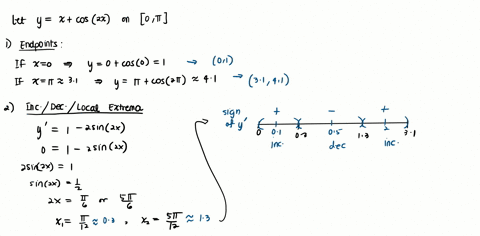 Let y = x + cos(2x) on [0, π]
1) Endpoints:
If x=0 ⇒ y = 0 + cos(0) = 1 → (0,1)
If x=π ≈ 3.1 ⇒ y = π + cos(2π) ≈ 4.1 → (3.1, 4.1)
2) Inc./Dec./Local Extrema
y' = 1 - 2sin(2x)
0 = 1 - 2sin(2x)
2sin(2x) = 1
sin(2x) = 1/2
2x = π/6 or 5π/6
x₁ = π/12 ≈ 0.3, x₂ = 5π/12 ≈ 1.3
sign of y' + - +
0 0.1 0.3 0.5 1.3 2 3.1
inc. dec inc.